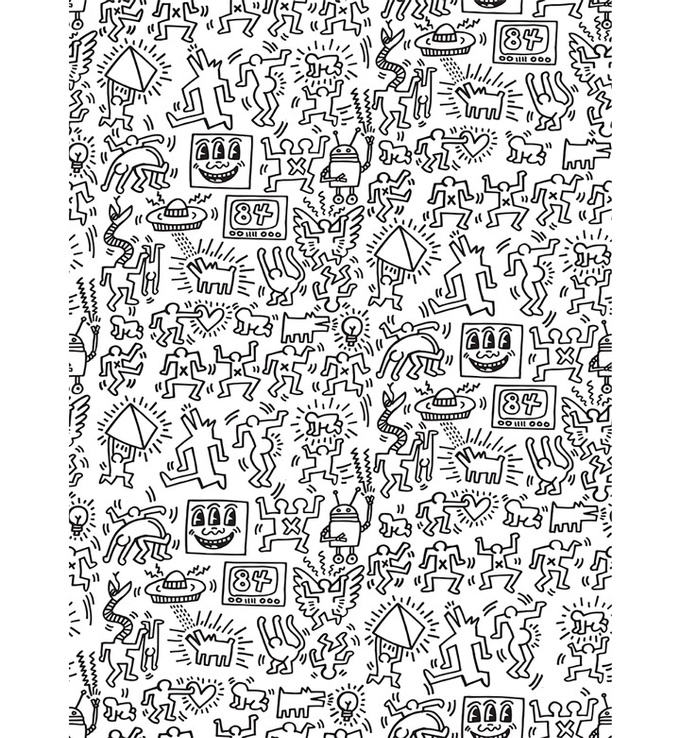 84
84
84
84